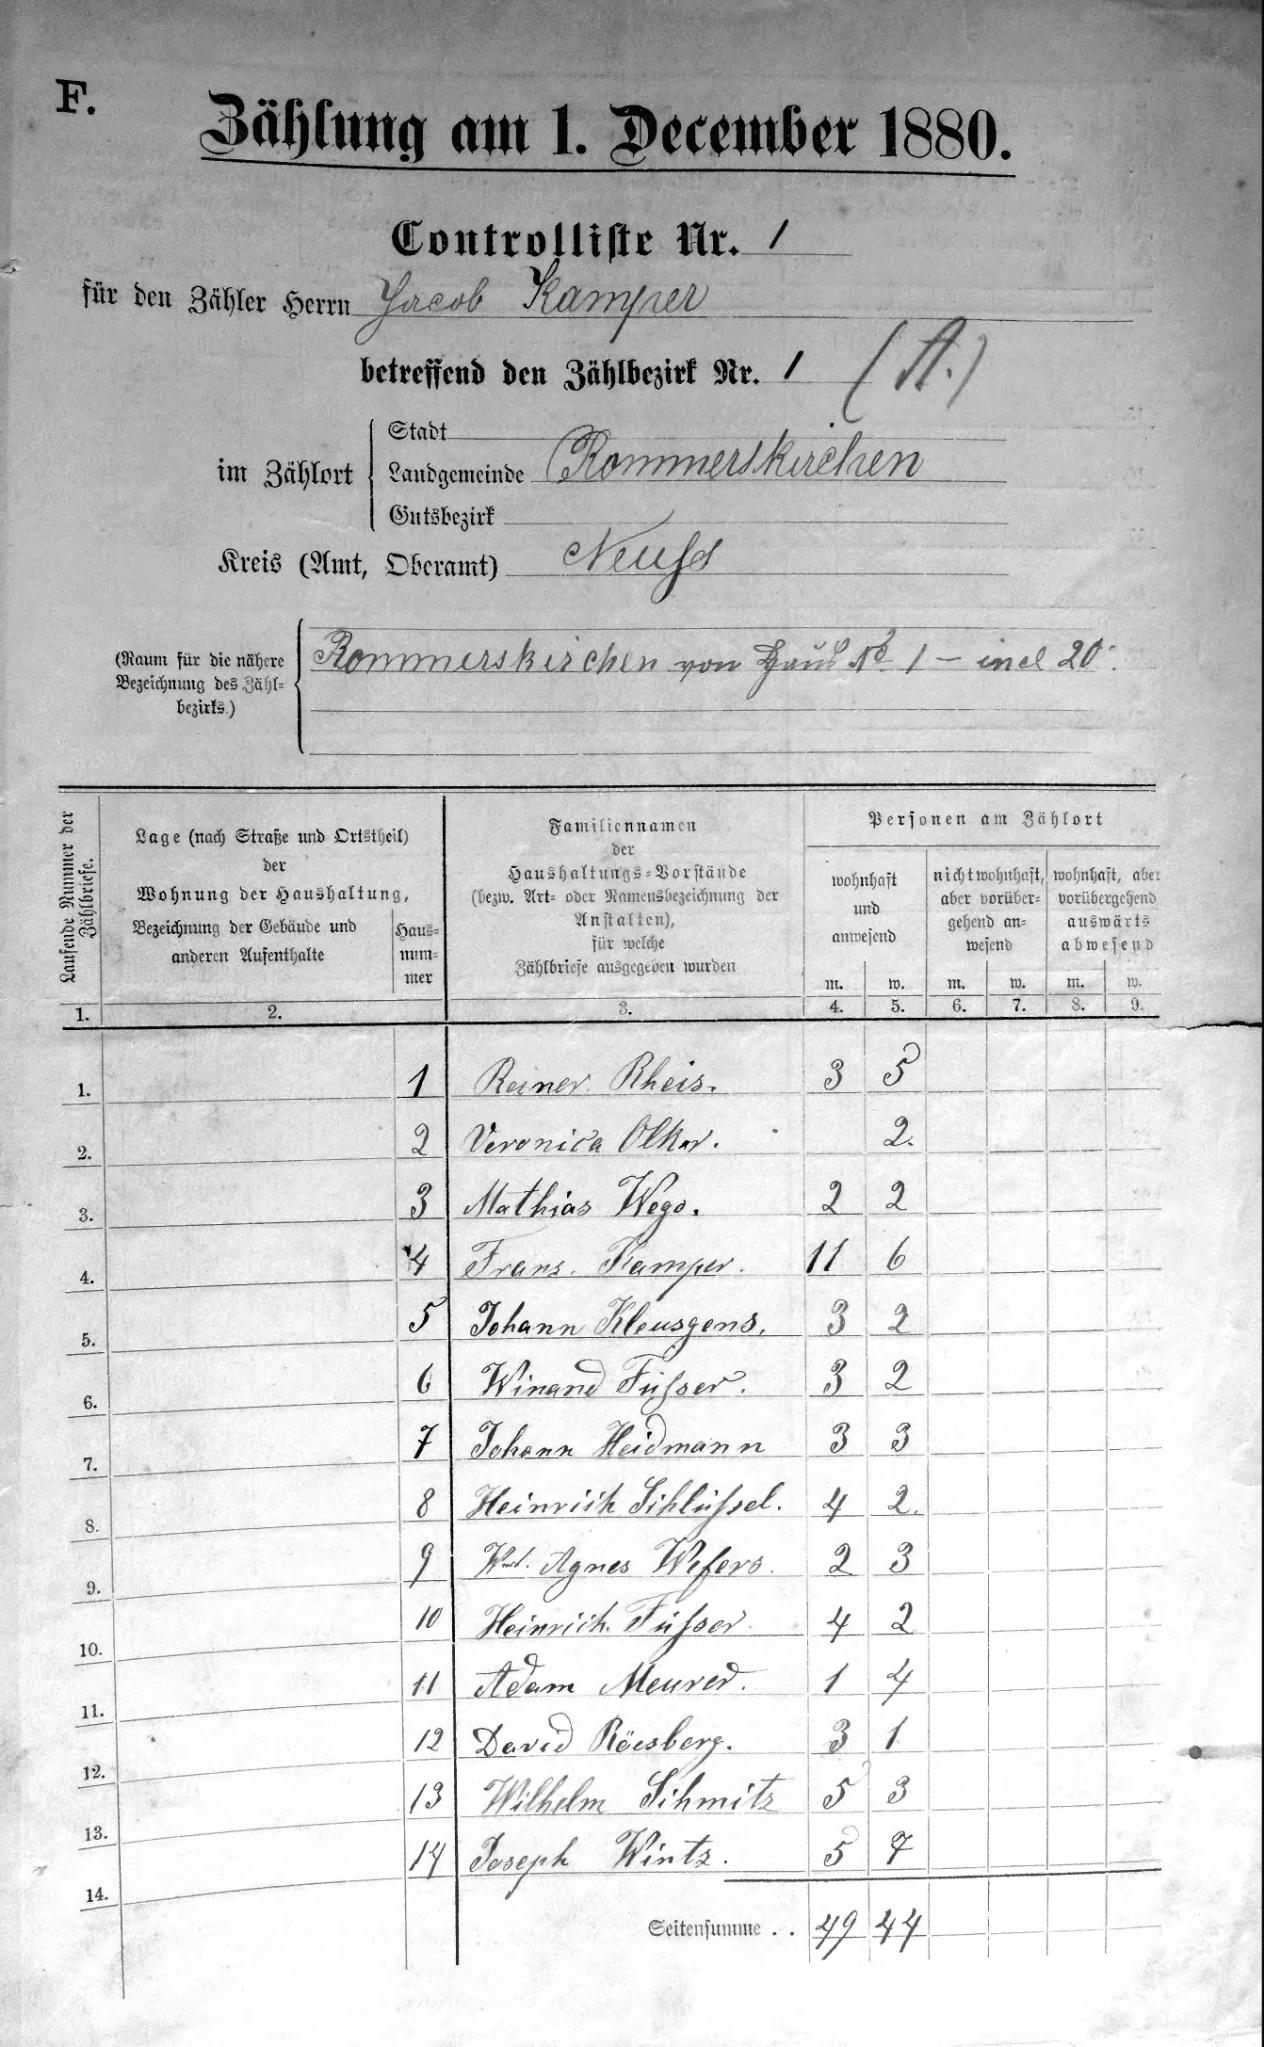 F.
Zählung am 1. December 1880.
Controlliste Nr. 1
für den Zähler Herrn Jacob Kamper
betreffend den Zählbezirk Nr. 1 (A.)
im Zählort
Stadt
Landgemeinde Rommerskirchen
Gutsbezirk
Kreis (Amt, Oberamt) Neuss
(Raum für die nähere Bezeichnung des Zähl-
bezirks.)
Rommerskirchen von Haus No 1 – incl 20.
Laufende Nummer der Zählbriefe.
Lage (nach Straße und Ortstheil)
der
Wohnung der Haushaltung,
Bezeichnung der Gebäude und
anderen Aufenthalte
Haus-
num-
mer
Familiennamen
der
Haushaltungs-Vorstände
(bezw. Art- oder Namensbezeichnung der
Anstalten),
für welche
Zählbriefe ausgegeben wurden
Personen am Zählort
wohnhaft
und
anwesend
nicht wohnhaft,
aber vorüber-
gehend an-
wesend
wohnhaft, aber
vorübergehend
auswärts
abwesend
m. w. m. w. m. w.
1. 2. 3. 4. 5. 6. 7. 8. 9.
1. 1 Reiner Rheis. 3 5
2. 2 Veronica Olker. 2.
3. 3 Mathias Wego. 2 2
4. 4 Franz. Kamper. 11 6
5. 5 Johann Kleusgens. 3 2
6. 6 Winand Füsser. 3 2
7. 7 Johann Heidmann 3 3
8. 8 Heinrich Schlüssel. 4 2.
9. 9 Agnes Wefers. 2 3
10. 10 Heinrich. Füsser 4 2
11. 11 Adam Meurer. 1 4
12. 12 David Röesberg. 3 1
13. 13 Wilhelm Schmitz 5 3
14. 14 Joseph Wintz. 5 7
Seitensumme . . 49 44